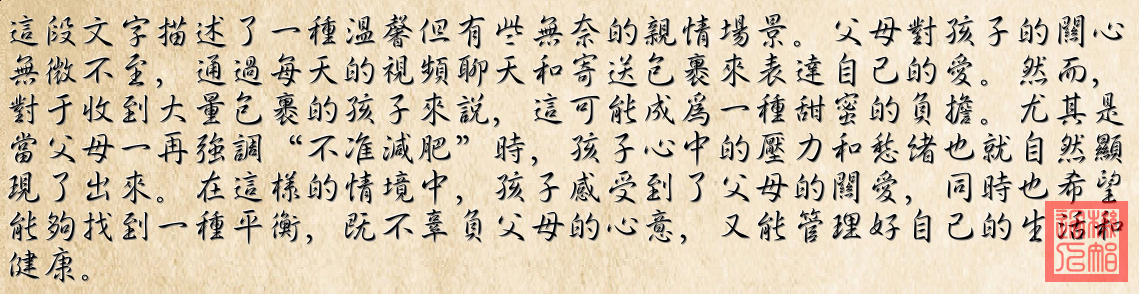 這段文字描述了一種溫馨但有些無奈的親情場景。父母對孩子的關心
無微不至，通過每天的視頻聊天和寄送包裹來表達自己的愛。然而，
對于收到大量包裹的孩子來説，這可能成爲一種甜蜜的負擔。尤其是
當父母一再強調“不准減肥”時，孩子心中的壓力和愁緒也就自然顯
現了出來。在這樣的情境中，孩子感受到了父母的關愛，同時也希望
能夠找到一種平衡，既不辜負父母的心意，又能管理好自己的生活和
健康。